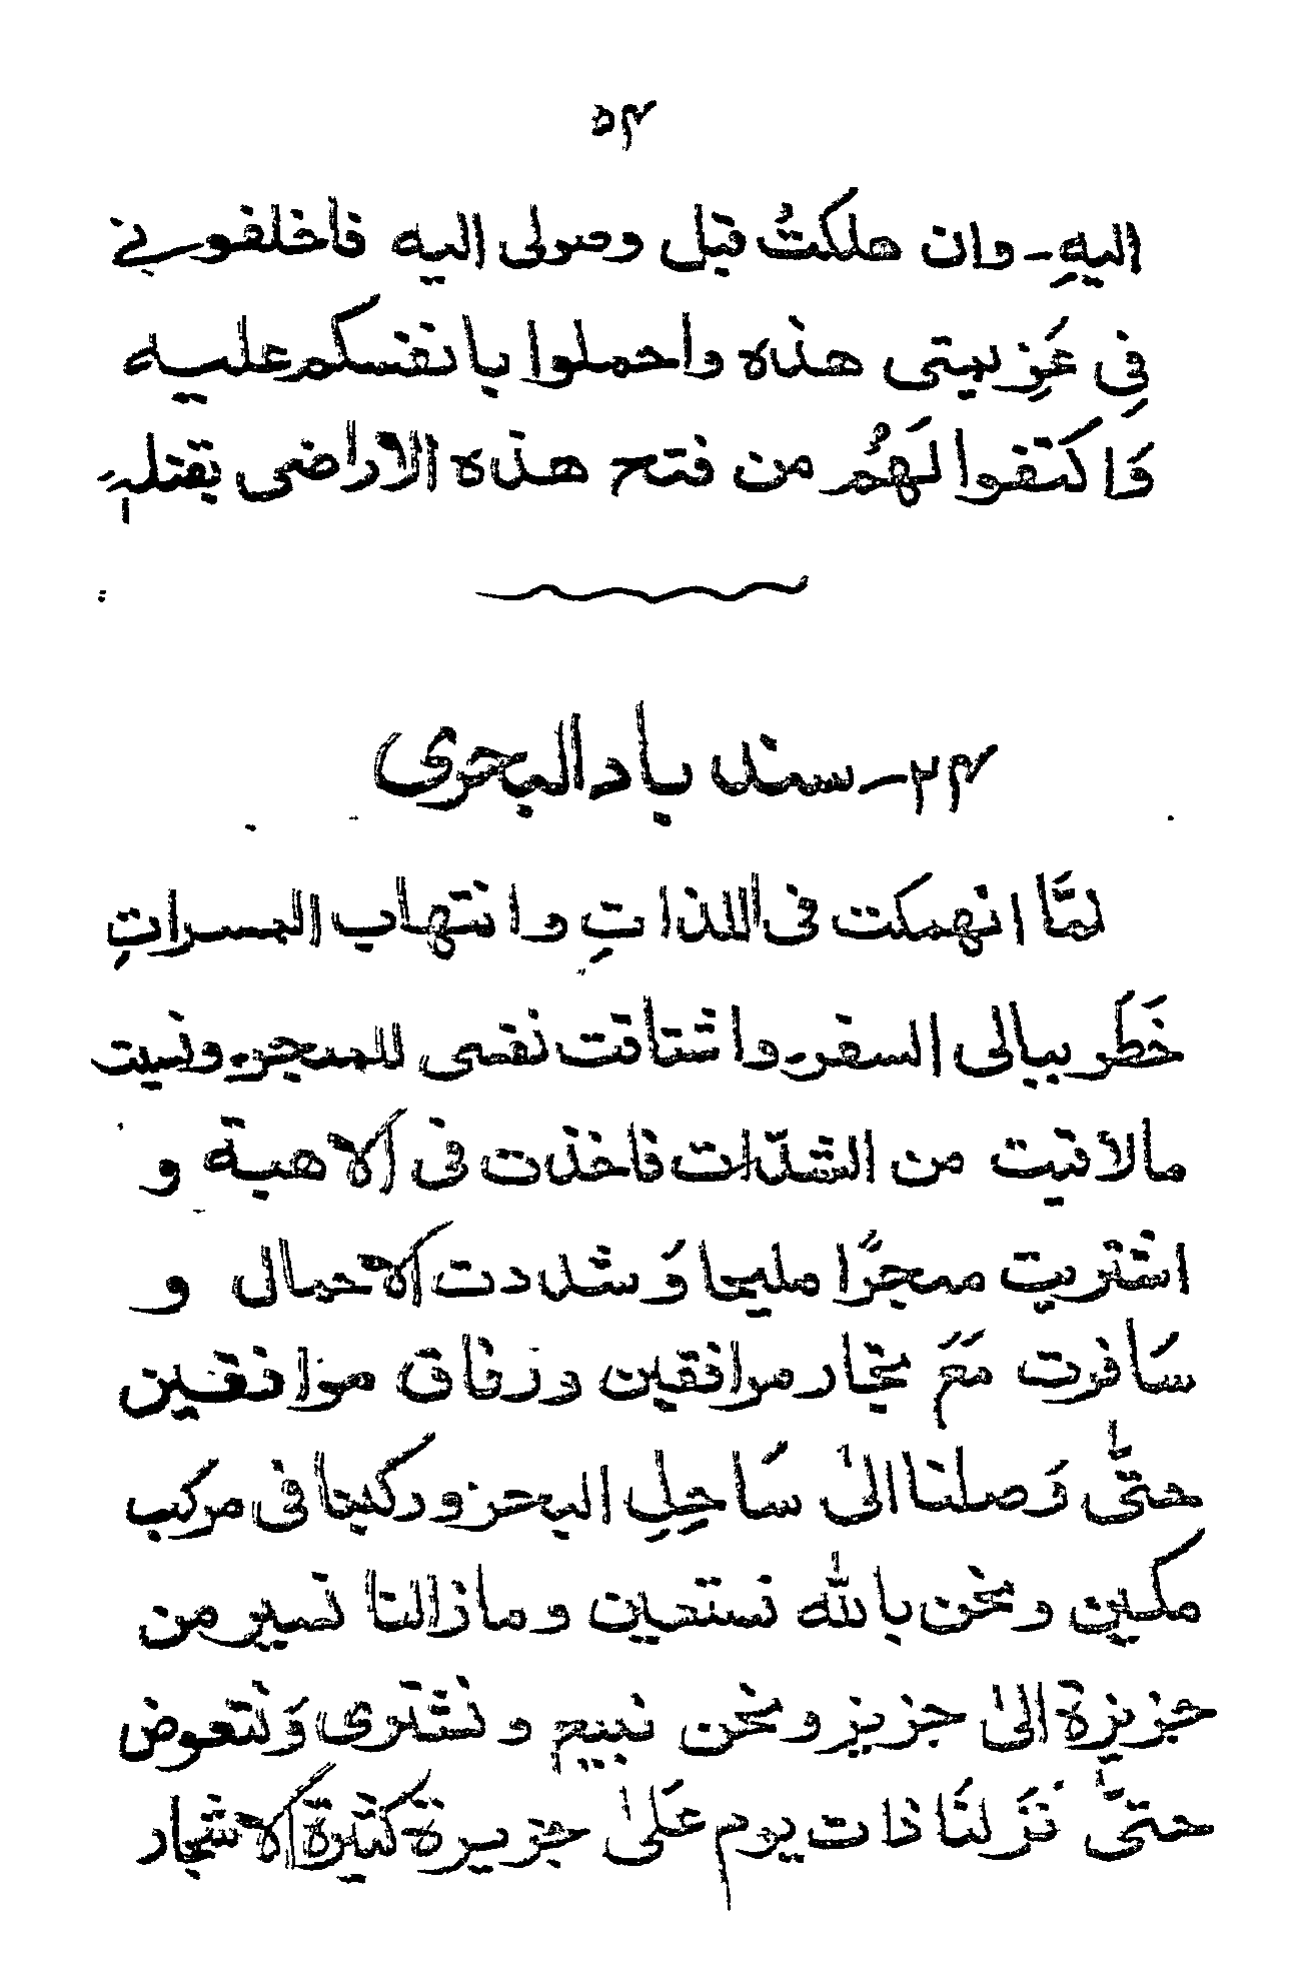 ٥٣
اليهِ۔ وان هلكتُ قبل وصولى اليه فاخلفونے
فِى عَزِيمتى هذه واحملوا بانفسكم عليه
وَاكتفوا لَهُم من فتح هذه الاراضى بقتله
٢٣۔ سند باد البحرى
لمَّا انهمكت فى اللذاتِ وانتهاب المسراتِ
خَطَر ببالى السفر۔ واشتاقت نفسى للمتجر۔ ونسيت
مالاقيت من الشدّات فاخذت فى الاهبة و
اشتريت متجرًا مليحا وَشددت الاحمال و
سَافرت مَعَ تجار مرافقين ورفاق موافقين
حتّى وَصلنا الىٰ سَاحِلِ البحر وركبنا فى مركب
مكين ونحن بالله نستعين ومازالنا نسير من
جزيزة الىٰ جزيز ونحن نبيع ونشترى وَنتعوض
حتىّٰ نَزَلنَا ذات يوم عَلىٰ جزيرة كثيرة الاشجار